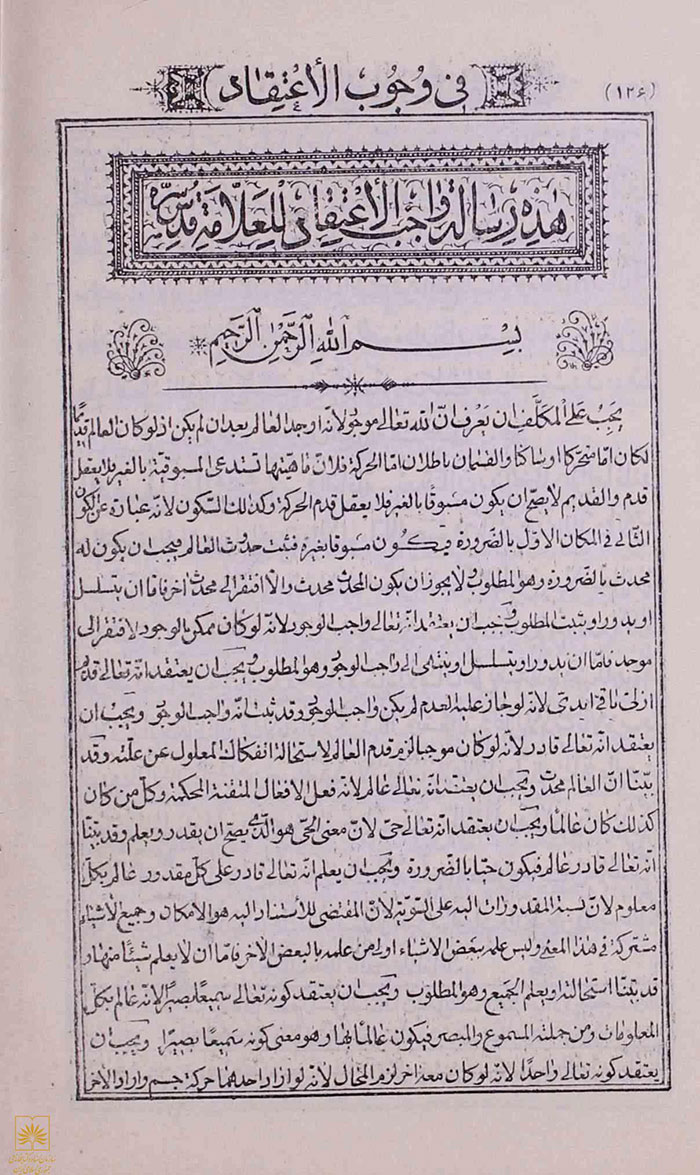 (١٢۶)
في وجوب الأعتقاد
هذه رسالة واجب الأعتقاد للعلامة قدس سره
بسم الله الرحمن الرحيم
يجب على المكلف ان يعرف ان الله تعالى موجود لانه اوجد العالم بعد ان لم يكن اذ لو كان العالم قديمًا
لكان اما متحركا او ساكنا والقسمان باطلان اما الحركة فلان ماهيتها تستدعي المسبوقية بالغير فلا يعقل
قدم والقديم لا يصح ان يكون مسبوقا بالغير فلا يعقل قدم الحركة وكذلك السكون لانه عبارة عن الكون
الثاني في المكان الاول بالضرورة فيكون مسبوقا بغيره فثبت حدوث العالم فيجب ان يكون له
محدث بالضرورة وهو المطلوب لا يجوز ان يكون المحدث محدث والا افتقر الى محدث اخر فاما ان يتسلسل
او يدور او يثبت المطلوب ويجب ان يعتقد انه تعالى واجب الوجود لانه لو كان ممكن بالوجود لافتقر الى
موجد فاما ان يدور او يتسلسل او ينتهى الى واجب الوجود وهو المطلوب ويجب ان يعتقد انه تعالى قديم
ازلي باقي ابدي لانه لو جاز عليه العدم لم يكن واجب الوجود وقد ثبت انه واجب الوجود ويجب ان
يعتقد انه تعالى قادر لانه لو كان موجبا لزم قدم العالم لاستحالة انفكاك المعلول عن علته وقد
بينا ان العالم محدث ويجب ان يعتقد انه تعالى عالم لانه فعل الافعال المتقنة المحكمة وكل من كان
كذلك كان عالما ويجب ان يعتقد انه تعالى حي لان معنى الحي هو الذي يصح ان يقدر ويعلم وقد بينا
انه تعالى قادر عالم فيكون حيا بالضرورة ويجب ان يعلم انه تعالى قادر على كل مقدور عالم بكل
معلوم لان نسبة المقدورات اليه على السوية لان المقتضى للأستناد اليه هو الامكان وجميع الاشياء
مشتركة في هذا المعنى وليس علمه ببعض الاشياء اولى من علمه بالبعض الاخر فاما ان لا يعلم شيئا منها و
قد بينا استحالته او يعلم الجميع وهو المطلوب ويجب ان يعتقد كونه تعالى سميعا بصيرا لانه عالم بكل
المعلومات ومن جملته المسموع والمبصر فيكون عالما بها وهو معنى كونه سميعا بصيرا ويجب ان
يعتقد كونه تعالى واحدا لانه لو كان معه اخر لزم المحال لانه لو اراد احدهما حركة جسم واراد الاخر